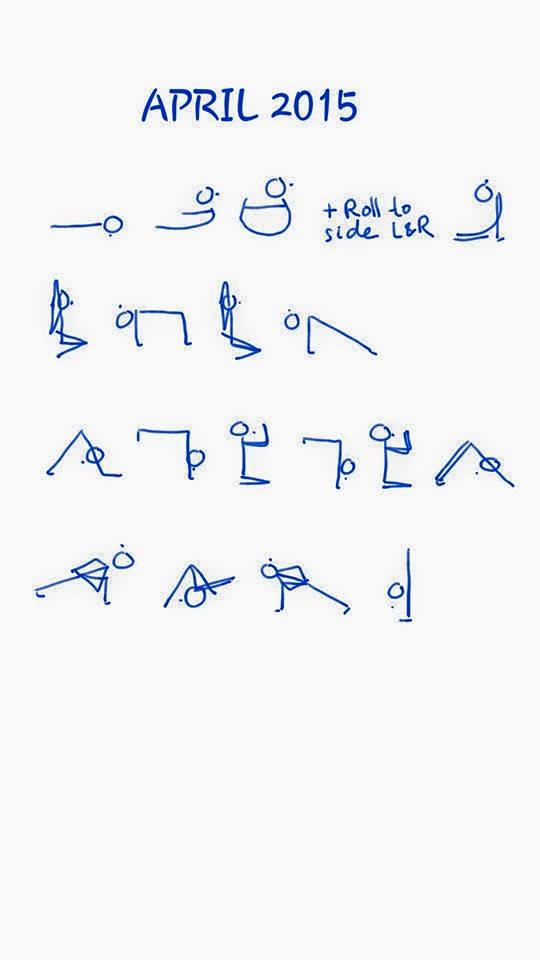 APRIL 2015
+ Roll to
side L&R